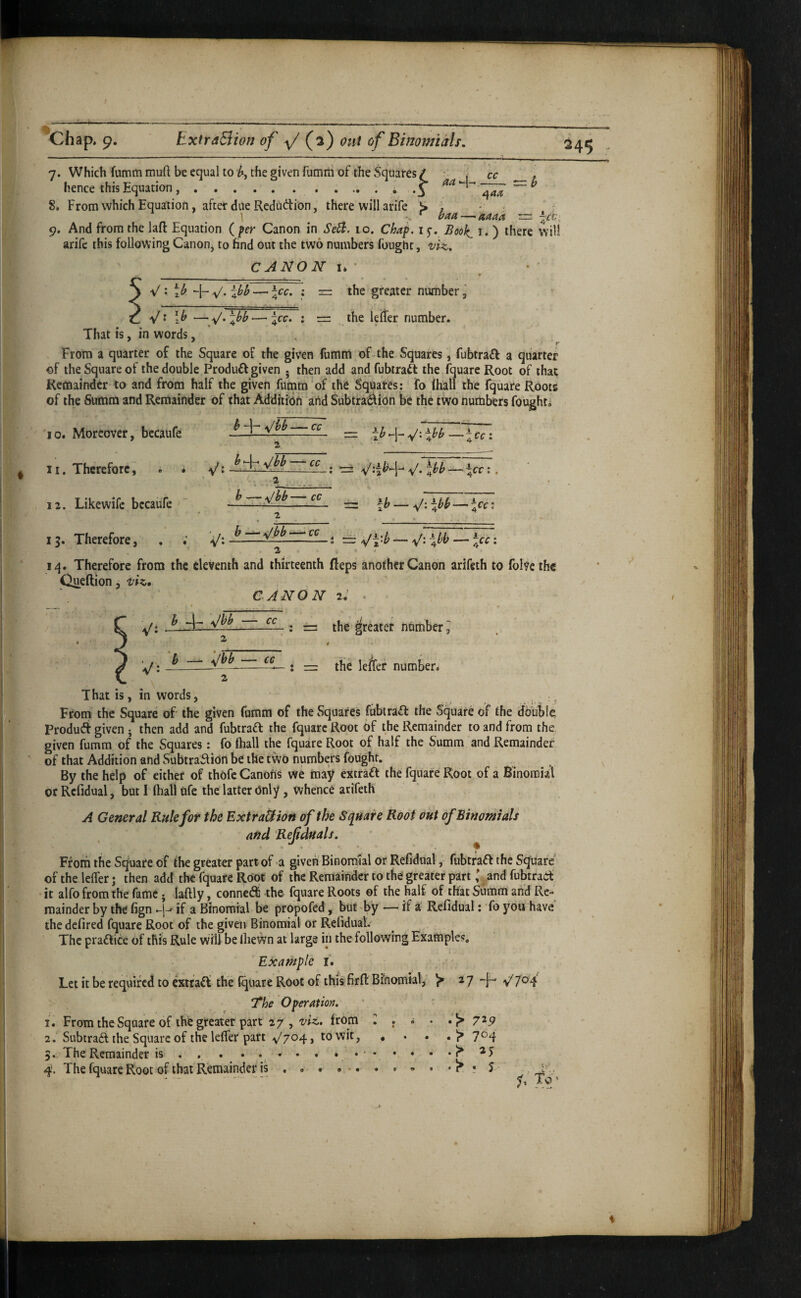 Chap. 9. Extraction of √ (2) out of Binomials. 245
7. Which ſumm muſt be equal to b, the given ſumm of the Squares
hence this Equation, . . . . . . . . . . . . aa + cc/4aa = b
8. From which Equation, after due Reduction, there will ariſe > baa — aaaa = ¼cc.
9. And from the laſt Equation (per Canon in Sect. 10. Chap. 15. Book 1.) there will
ariſe this following Canon, to find out the two numbers ſought, viz.
CANON 1.
√: ½b + √. ¼bb — ¼cc. : = the greater number,
√: ½b — √. ¼bb — ¼cc. : = the leſſer number.
That is, in words,
From a quarter of the Square of the given ſumm of the Squares, ſubtract a quarter
of the Square of the double Product given ; then add and ſubtract the ſquare Root of that
Remainder to and from half the given ſumm of the Squares: ſo ſhall the ſquare Roots
of the Summ and Remainder of that Addition and Subtraction be the two numbers ſought.
10. Moreover, becauſe b + √bb — cc / 2 = ½b + √: ¼bb — ¼cc :
11. Therefore, . . √: b + √bb — cc / 2 : = √:½b + √. ¼bb — ¼cc : .
12. Likewiſe becauſe b — √bb — cc / 2 = ½b — √: ¼bb — ¼cc :
13. Therefore, . . √: b — √bb — cc / 2 : = √½:b — √: ¼bb — ¼cc :
14. Therefore from the eleventh and thirteenth ſteps another Canon ariſeth to ſolve the
Queſtion, viz.
CANON 2.
√: b + √bb — cc / 2 : = the greater number,
√: b — √bb — cc / 2 : = the leſſer number.
That is, in words,
From the Square of the given ſumm of the Squares ſubtract the Square of the double
Product given ; then add and ſubtract the ſquare Root of the Remainder to and from the
given ſumm of the Squares : ſo ſhall the ſquare Root of half the Summ and Remainder
of that Addition and Subtraction be the two numbers ſought.
By the help of either of thoſe Canons we may extract the ſquare Root of a Binomial
or Reſidual, but I ſhall uſe the latter only, whence ariſeth
A General Rule for the Extraction of the Square Root out of Binomials
and Reſiduals.
From the Square of the greater part of a given Binomial or Reſidual, ſubtract the Square
of the leſſer ; then add the ſquare Root of the Remainder to the greater part, and ſubtract
it alſo from the ſame ; laſtly, connect the ſquare Roots of the half of that Summ and Re-
mainder by the ſign + if a Binomial be propoſed, but by — if a Reſidual: ſo you have
the deſired ſquare Root of the given Binomial or Reſidual.
The practice of this Rule will be ſhewn at large in the following Examples.
Example 1.
Let it be required to extract the ſquare Root of this firſt Binomial, > 27 + √704
The Operation.
1. From the Square of the greater part 27, viz. from . . . . > 729
2. Subtract the Square of the leſſer part √704, to wit, . . . . > 704
3. The Remainder is . . . . . . . . . . . . . . > 25
4. The ſquare Root of that Remainder is . . . . . . . . . > 5
5. To